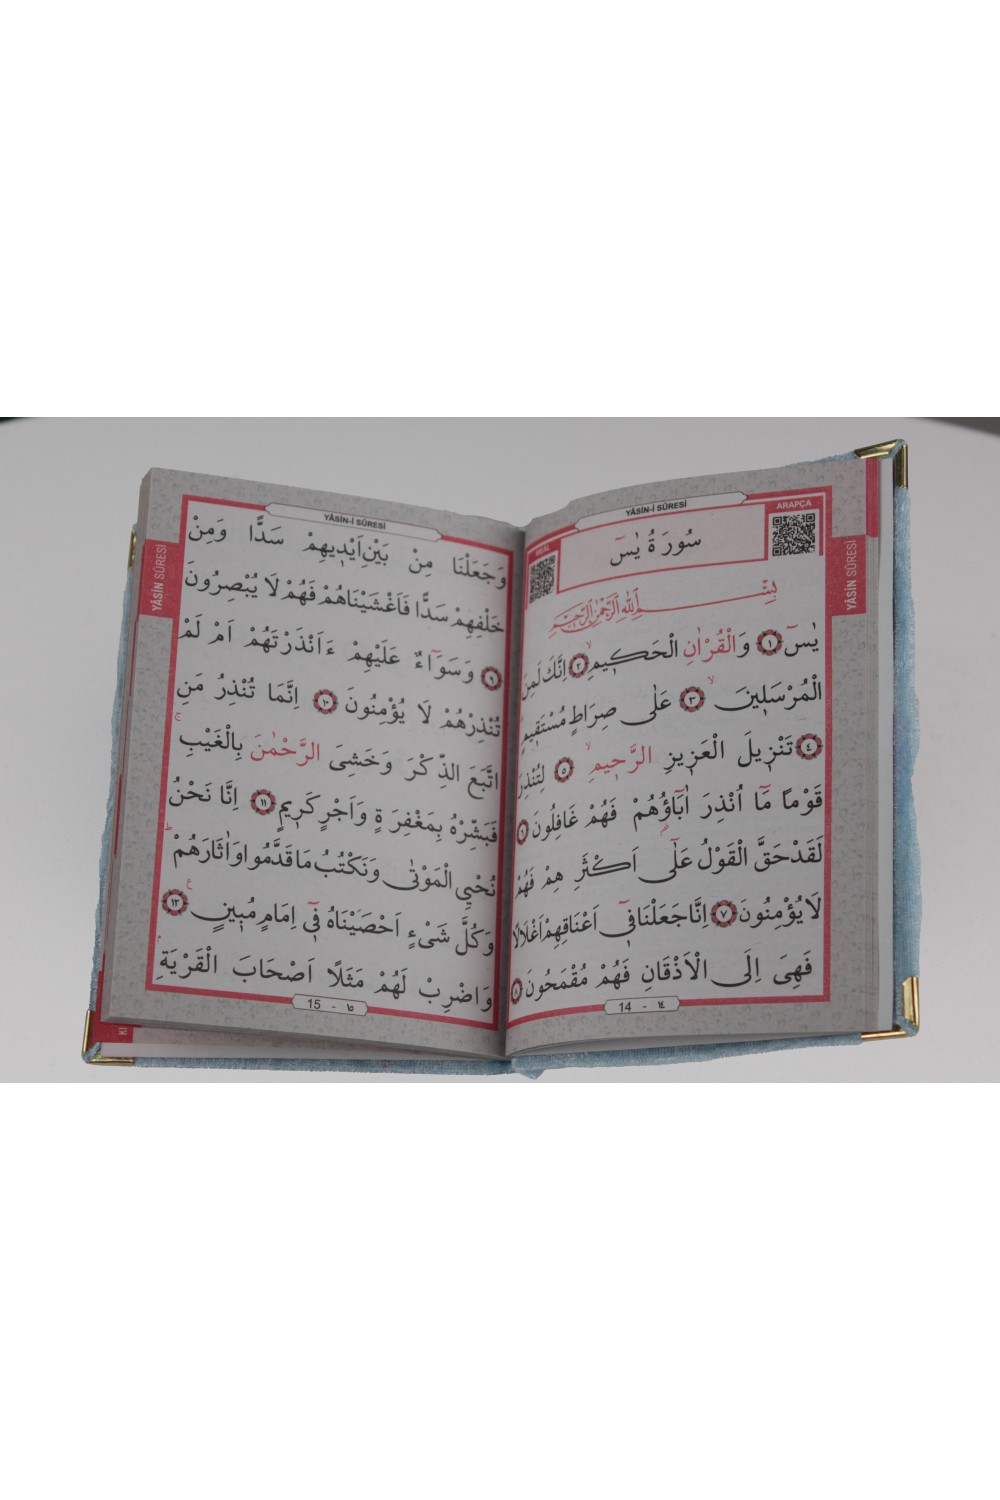 YÂSİN-İ SÛRESİ
ARAPÇA
MEAL
سُورَةُ يٰسٓ
بِسْمِ اللّٰهِ الرَّحْمٰنِ الرَّحٖيمِ
يٰسٓ ﴿١﴾ وَالْقُرْاٰنِ الْحَكٖيمِۙ ﴿٢﴾ اِنَّكَ لَمِنَ
الْمُرْسَلٖينَۙ ﴿٣﴾ عَلٰى صِرَاطٍ مُسْتَقٖيمٍۜ
﴿٤﴾ تَنْزٖيلَ الْعَزٖيزِ الرَّحٖيمِۙ ﴿٥﴾ لِتُنْذِرَ
قَوْمًا مَٓا اُنْذِرَ اٰبَٓاؤُهُمْ فَهُمْ غَافِلُونَ ﴿٦﴾
لَقَدْ حَقَّ الْقَوْلُ عَلٰٓى اَكْثَرِهِمْ فَهُمْ
لَا يُؤْمِنُونَ ﴿٧﴾ اِنَّا جَعَلْنَا فٖٓى اَعْنَاقِهِمْ اَغْلَالًا
فَهِىَ اِلَى الْاَذْقَانِ فَهُمْ مُقْمَحُونَ ﴿٨﴾
14 - ١٤
YÂSİN SÛRESİ
YÂSİN-İ SÛRESİ
وَجَعَلْنَا مِنْ بَيْنِ اَيْدٖيهِمْ سَدًّا وَمِنْ
خَلْفِهِمْ سَدًّا فَاَغْشَيْنَاهُمْ فَهُمْ لَا يُبْصِرُونَ
﴿٩﴾ وَسَوَٓاءٌ عَلَيْهِمْ ءَاَنْذَرْتَهُمْ اَمْ لَمْ
تُنْذِرْهُمْ لَا يُؤْمِنُونَ ﴿١٠﴾ اِنَّمَا تُنْذِرُ مَنِ
اتَّبَعَ الذِّكْرَ وَخَشِىَ الرَّحْمٰنَ بِالْغَيْبِۚ
فَبَشِّرْهُ بِمَغْفِرَةٍ وَاَجْرٍ كَرٖيمٍ ﴿١١﴾ اِنَّا نَحْنُ
نُحْيِ الْمَوْتٰى وَنَكْتُبُ مَا قَدَّمُوا وَاٰثَارَهُمْۜ
وَكُلَّ شَىْءٍ اَحْصَيْنَاهُ فٖٓى اِمَامٍ مُبٖينٍ ﴿١٢﴾
وَاضْرِبْ لَهُمْ مَثَلًا اَصْحَابَ الْقَرْيَةِۢ
15 - ١٥
YÂSİN SÛRESİ